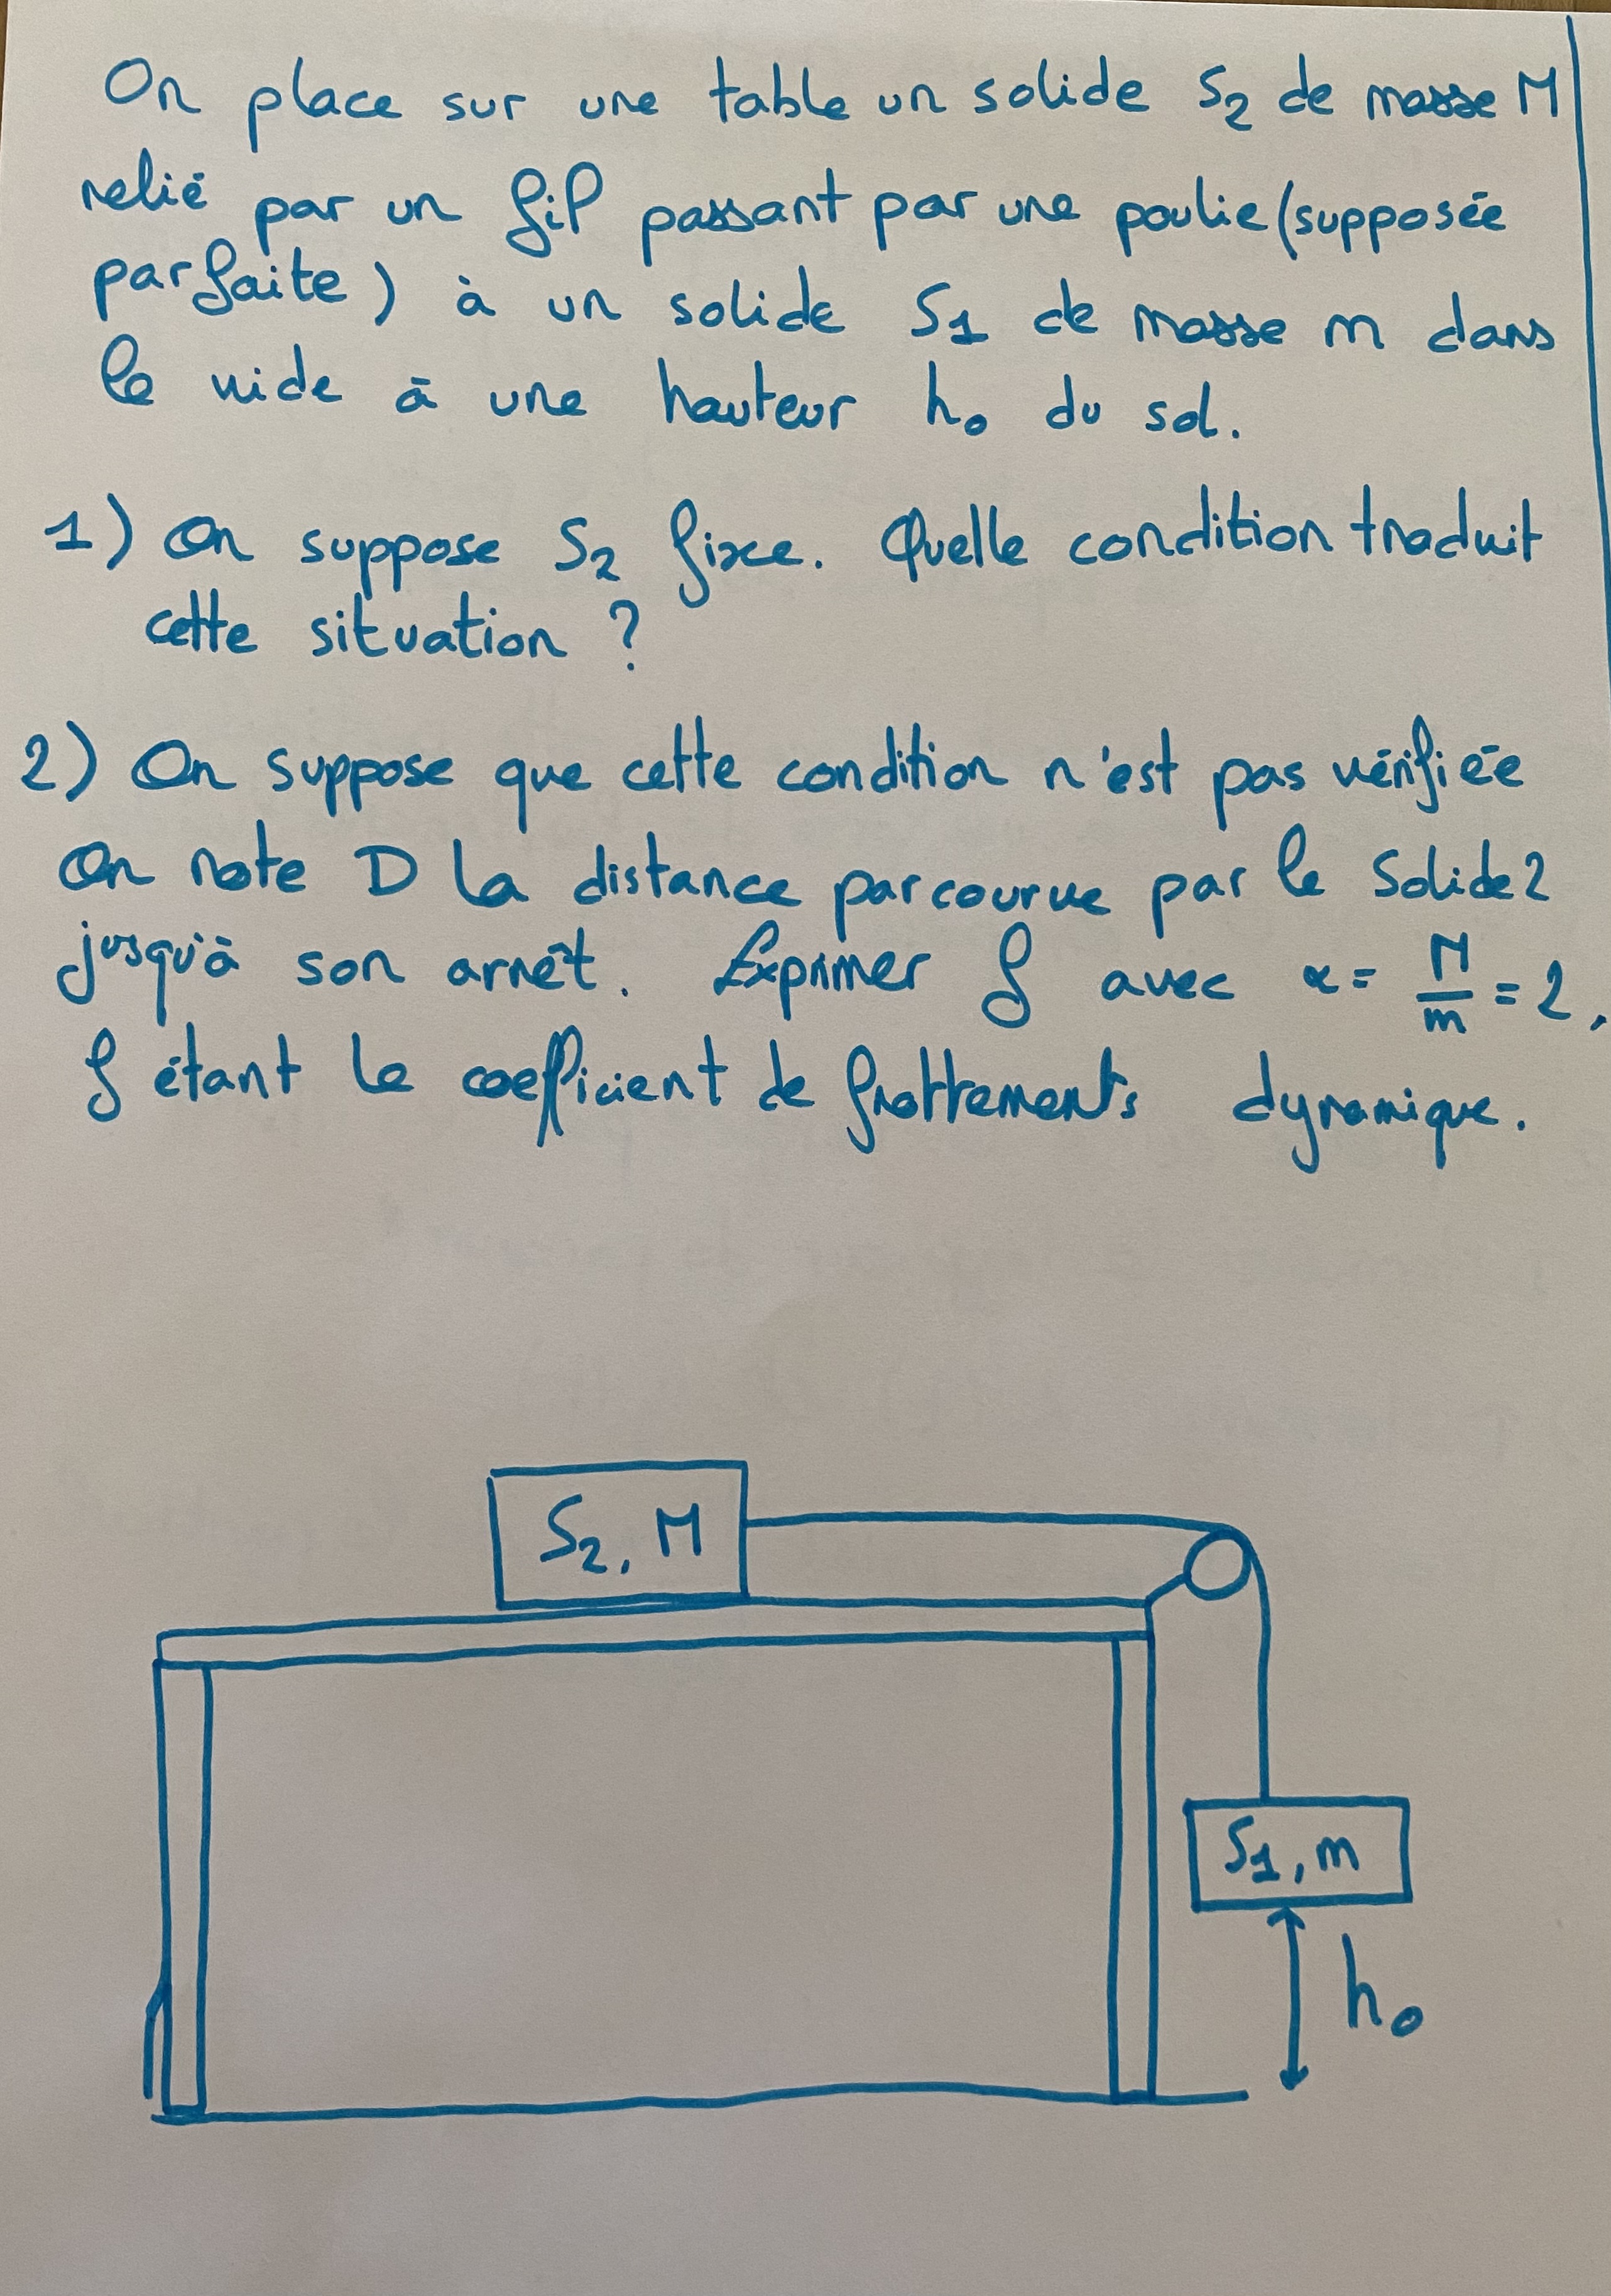 On place sur une table un solide S₂ de masse M
relié par un fil passant par une poulie (supposée
parfaite) à un solide S₁ de masse m dans
le vide à une hauteur h₀ du sol.
1) On suppose S₂ fixe. Quelle condition traduit
cette situation ?
2) On suppose que cette condition n'est pas vérifiée
On note D la distance parcourue par le Solide 2
jusqu'à son arrêt. Exprimer f avec α = M/m = 2,
f étant le coefficient de frottements dynamique.
S₂, M
S₁, m
h₀